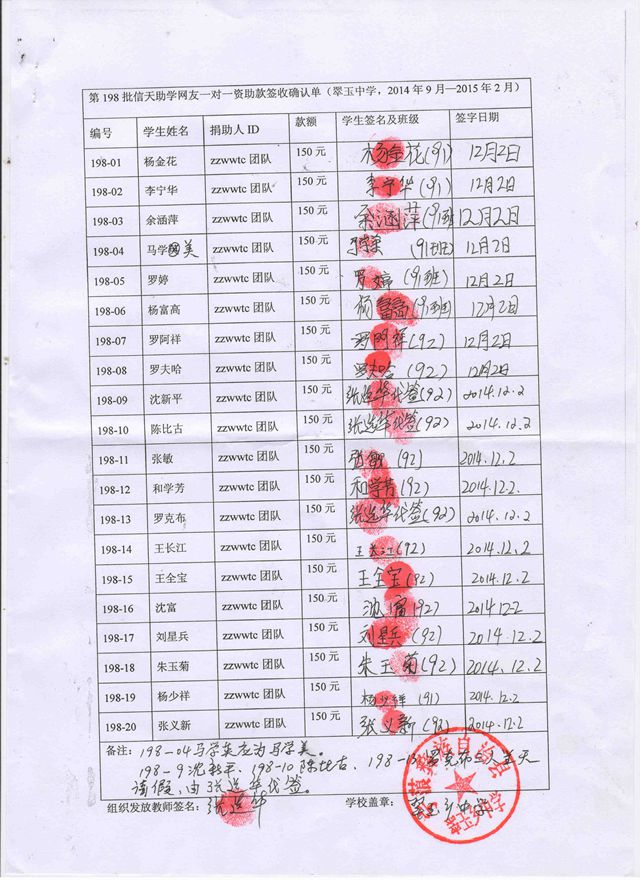 第 198 批信天助学网友一对一资助款签收确认单（翠玉中学，2014 年 9 月—2015 年 2 月）
编号 学生姓名 捐助人 ID 款额 学生签名及班级 签字日期
198-01 杨金花 zzwwtc 团队 150 元 杨金花(91) 12月2日
198-02 李宁华 zzwwtc 团队 150 元 李宁华(91) 12月2日
198-03 余涵萍 zzwwtc 团队 150 元 余涵萍(91班) 12月2日
198-04 马学美 zzwwtc 团队 150 元 (91班) 12月2日
198-05 罗婷 zzwwtc 团队 150 元 罗婷(91班) 12月2日
198-06 杨富高 zzwwtc 团队 150 元 杨富高(91班) 12月2日
198-07 罗阿祥 zzwwtc 团队 150 元 罗阿祥(92) 12月2日
198-08 罗夫哈 zzwwtc 团队 150 元 罗夫哈(92) 12月2日
198-09 沈新平 zzwwtc 团队 150 元 张运华代签(92) 2014.12.2
198-10 陈比古 zzwwtc 团队 150 元 张运华代签(92) 2014.12.2
198-11 张敏 zzwwtc 团队 150 元 张敏(92) 2014.12.2
198-12 和学芳 zzwwtc 团队 150 元 和学芳(92) 2014.12.2.
198-13 罗克布 zzwwtc 团队 150 元 张运华代签(92) 2014.12.2
198-14 王长江 zzwwtc 团队 150 元 王长江(92) 2014.12.2
198-15 王全宝 zzwwtc 团队 150 元 王全宝(92) 2014.12.2
198-16 沈富 zzwwtc 团队 150 元 沈富(92) 2014 12.2
198-17 刘星兵 zzwwtc 团队 150 元 刘星兵(92) 2014.12.2
198-18 朱玉菊 zzwwtc 团队 150 元 朱玉菊(92) 2014.12.2
198-19 杨少祥 zzwwtc 团队 150 元 杨少祥(91) 2014.12.2
198-20 张义新 zzwwtc 团队 150 元 张义新(92) 2014.12.2
备注：198-04马学英应为马学美。
198-9沈新平、198-10陈比古、198-13罗克布三人当天
请假，由张运华代签。
组织发放教师签名：张运华 学校盖章：翠玉乡中学